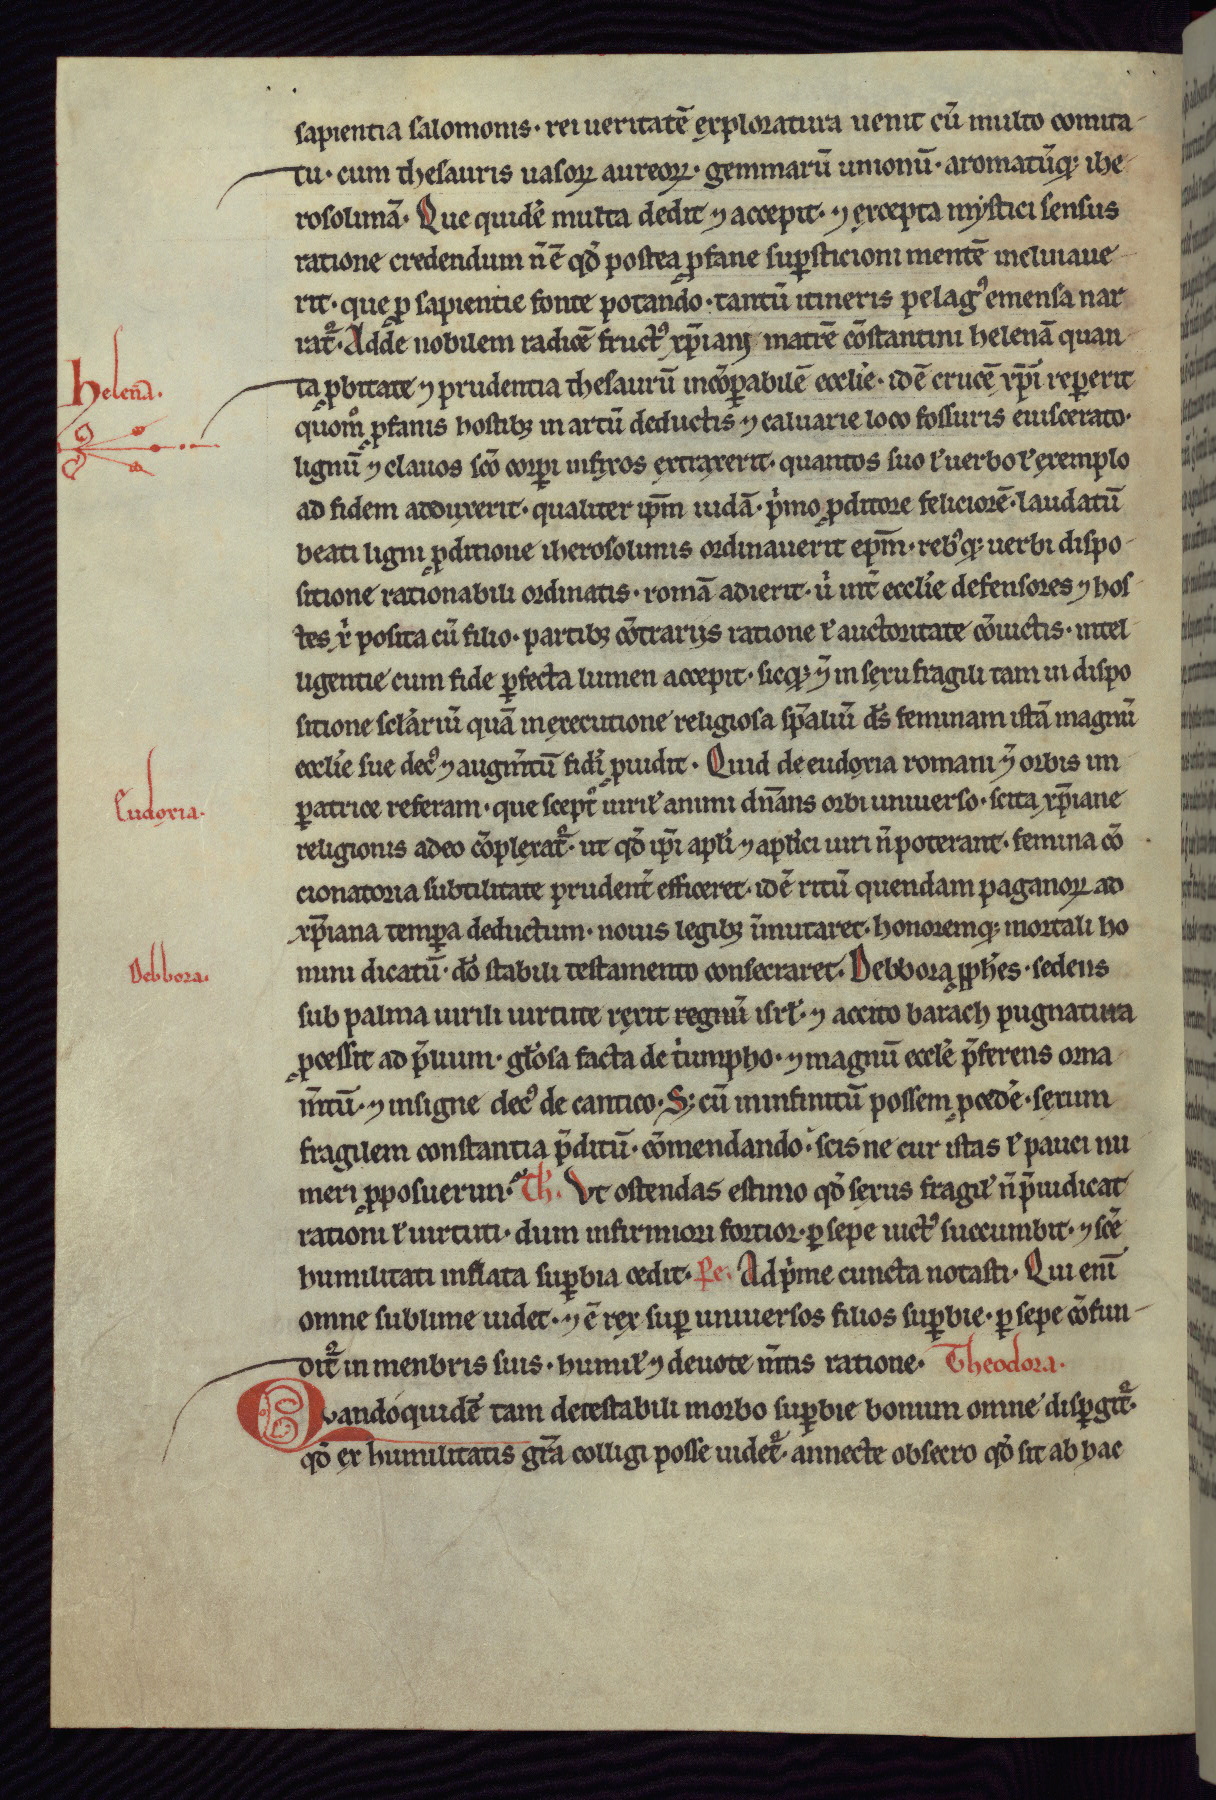 sapientia salomonis · rei ueritatē exploratura uenit cū multo comita-
tu · cum thesauris uasoꝝ aureoꝝ · gemmarū unionū · aromatūq; ihe-
rosolimā · Que quidē multa dedit ⁊ accepit · ⁊ excepta mystici sensus
ratione credendum n̄ ē qd̄ postea ꝓfane suꝑsticioni mentē inclinaue-
rit · que ꝓ sapientie fonte potando · tantū itineris pelagꝰ emensa nar
rat᷑ · Adde nobilem radicē fructꝰ xp̄iani matrē cōstantini helenā quan-
Helena.
ta ꝓbitate ⁊ prudentia thesaurū incōꝑabilē eccłie · id ē crucē xp̄i reꝑerit
quom̊ ꝓfanis hostibꝫ in artū deductis ⁊ caluarie loco fossuris euiscerato ·
lignū ⁊ clauos sc̄o corꝑi infixos extraxerit · quantos suo ł uerbo ł exemplo
ad fidem adduxerit · qualiter ip̄m iudā · p̍mo ꝓditore feliciorē · laudatū
beati ligni ꝓditione iherosolimis ordinauerit ep̄m · rebꝰq; uerbi dispo-
sitione rationabili ordinatis · romā adierit · u̍ int̄ eccłie defensores ⁊ hos-
tes x̍ posita cū filio · partibꝫ cōtrariis ratione ł auctoritate cōuictis · intel-
ligentie cum fide ꝑfecta lumen accepit · sicq; ⁊ in sexu fragili tam in dispo
sitione scłariū quā in executione religiosa sp̄aliū d̄s feminam istā magnū
eccłie sue decꝰ ⁊ augm̄tū fidei ꝓuidit · Quid de eudoxia romani ⁊ orbis im
Eudoxia.
ꝑatrice referam · que scept° uirił animi dn̄ans orbi uniuerso · scita xp̄iane
religionis adeo cōplexat᷑ · ut qd̄ ip̄i apłi ⁊ apłici uiri n̄ poterant · femina cō
cionatoria subtilitate prudent̄ efficeret · id ē ritū quendam paganoꝝ ad
xp̄iana temꝑa deductum · nouis legibꝫ īmutaret · honoremq; mortali ho
Debbora.
mini dicatū · dō stabili testamento consecraret · Debbora ꝓph̄es · sedens
sub palma uirili uirtute rexit regnū isrł · ⁊ accito barach pugnatura
ꝓcessit ad p̄lium · głosa facta de t̍umpho · ⁊ magnū eccłe p̄ferens orna
m̄tū · ⁊ insigne decꝰ de cantico · S; cū in infinitū possem ꝓcedē · sexum
fragilem constantia p̄ditū · cōmendando · scis ne cur istas ł pauci nu
meri ꝓposuerim · Th. Vt ostendas estimo qd̄ sexus fragił n̄ p̄iudicat
rationi ł uirtuti · dum infirmiori fortior · ꝑ sepe uictꝰ succumbit · ⁊ sc̄e
humilitati inflata suꝑbia cedit · Pe. Ad p̍me cuncta notasti · Qui enī
omne sublime uidet · ⁊ ē rex suꝑ uniuersos filios suꝑbie · ꝑ sepe cōfun-
dit᷑ in menbris suis · humił ⁊ deuote m̄tis ratione · Theodora.
Quandoquidē tam detestabili morbo suꝑbie bonum omne disꝑgit᷑ ·
qd̄ ex humilitatis gr̄a colligi posse uidet᷑ · annecte obsecro qd̄ sit ab hac